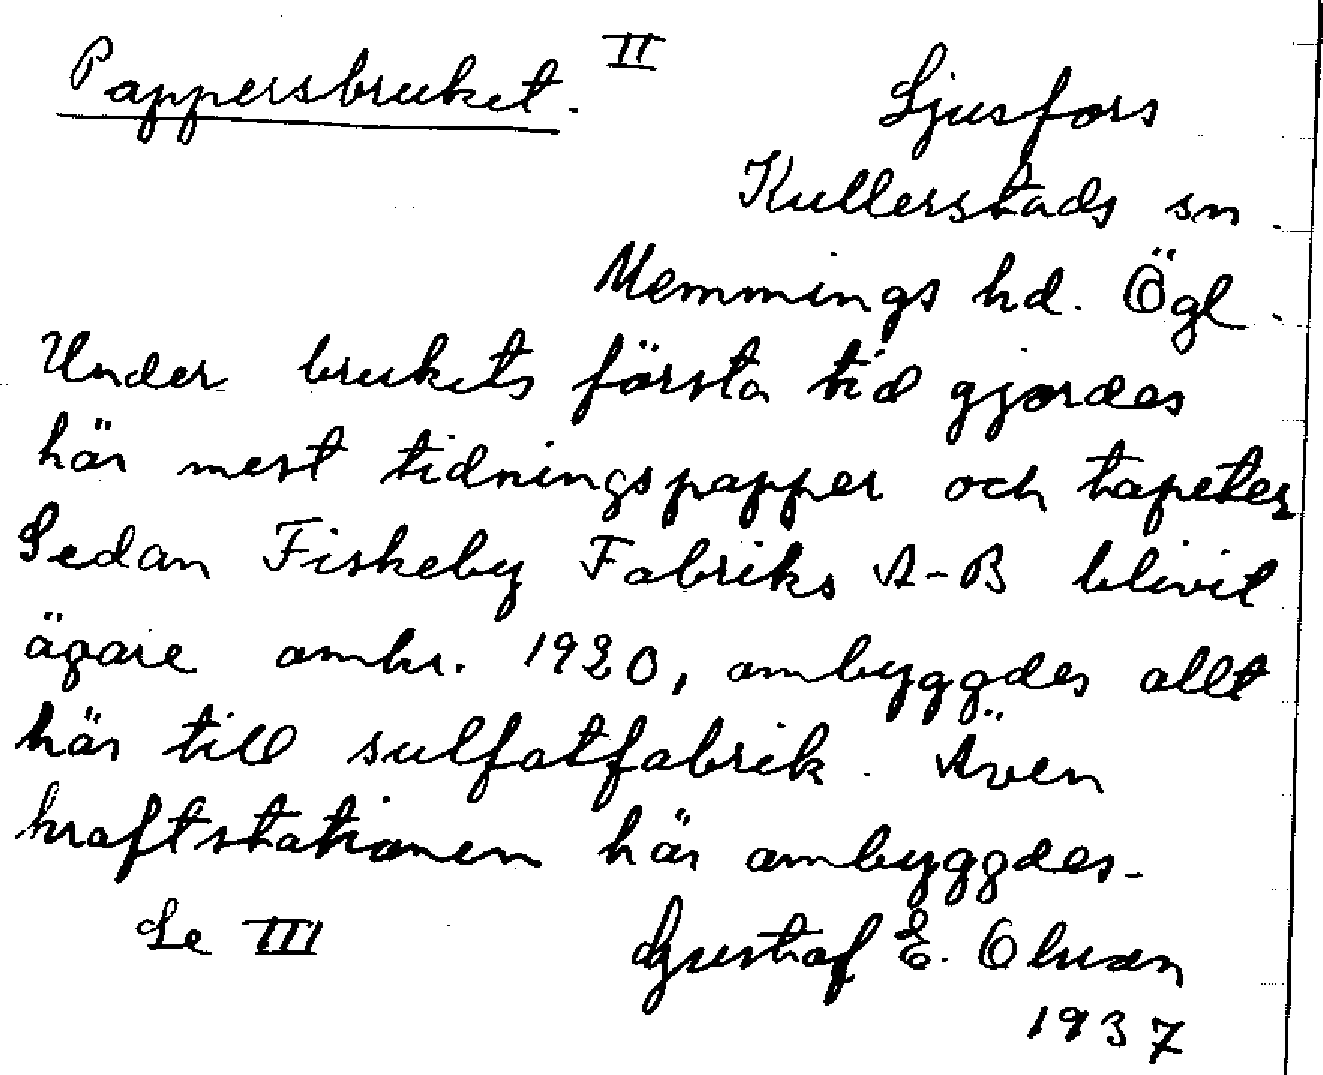 Pappersbruket. II
Ljusfors
Kullerstads sn.
Memmings hd. Ögl.
Under brukets första tid gjordes
här mest tidningspapper och tapeter
Sedan Fiskeby Fabriks A-B blivit
ägare omkr. 1920, ombyggdes allt
här till sulfatfabrik. Även
kraftstationen här ombyggdes.
Se III
Gustaf E. Olsson
1937